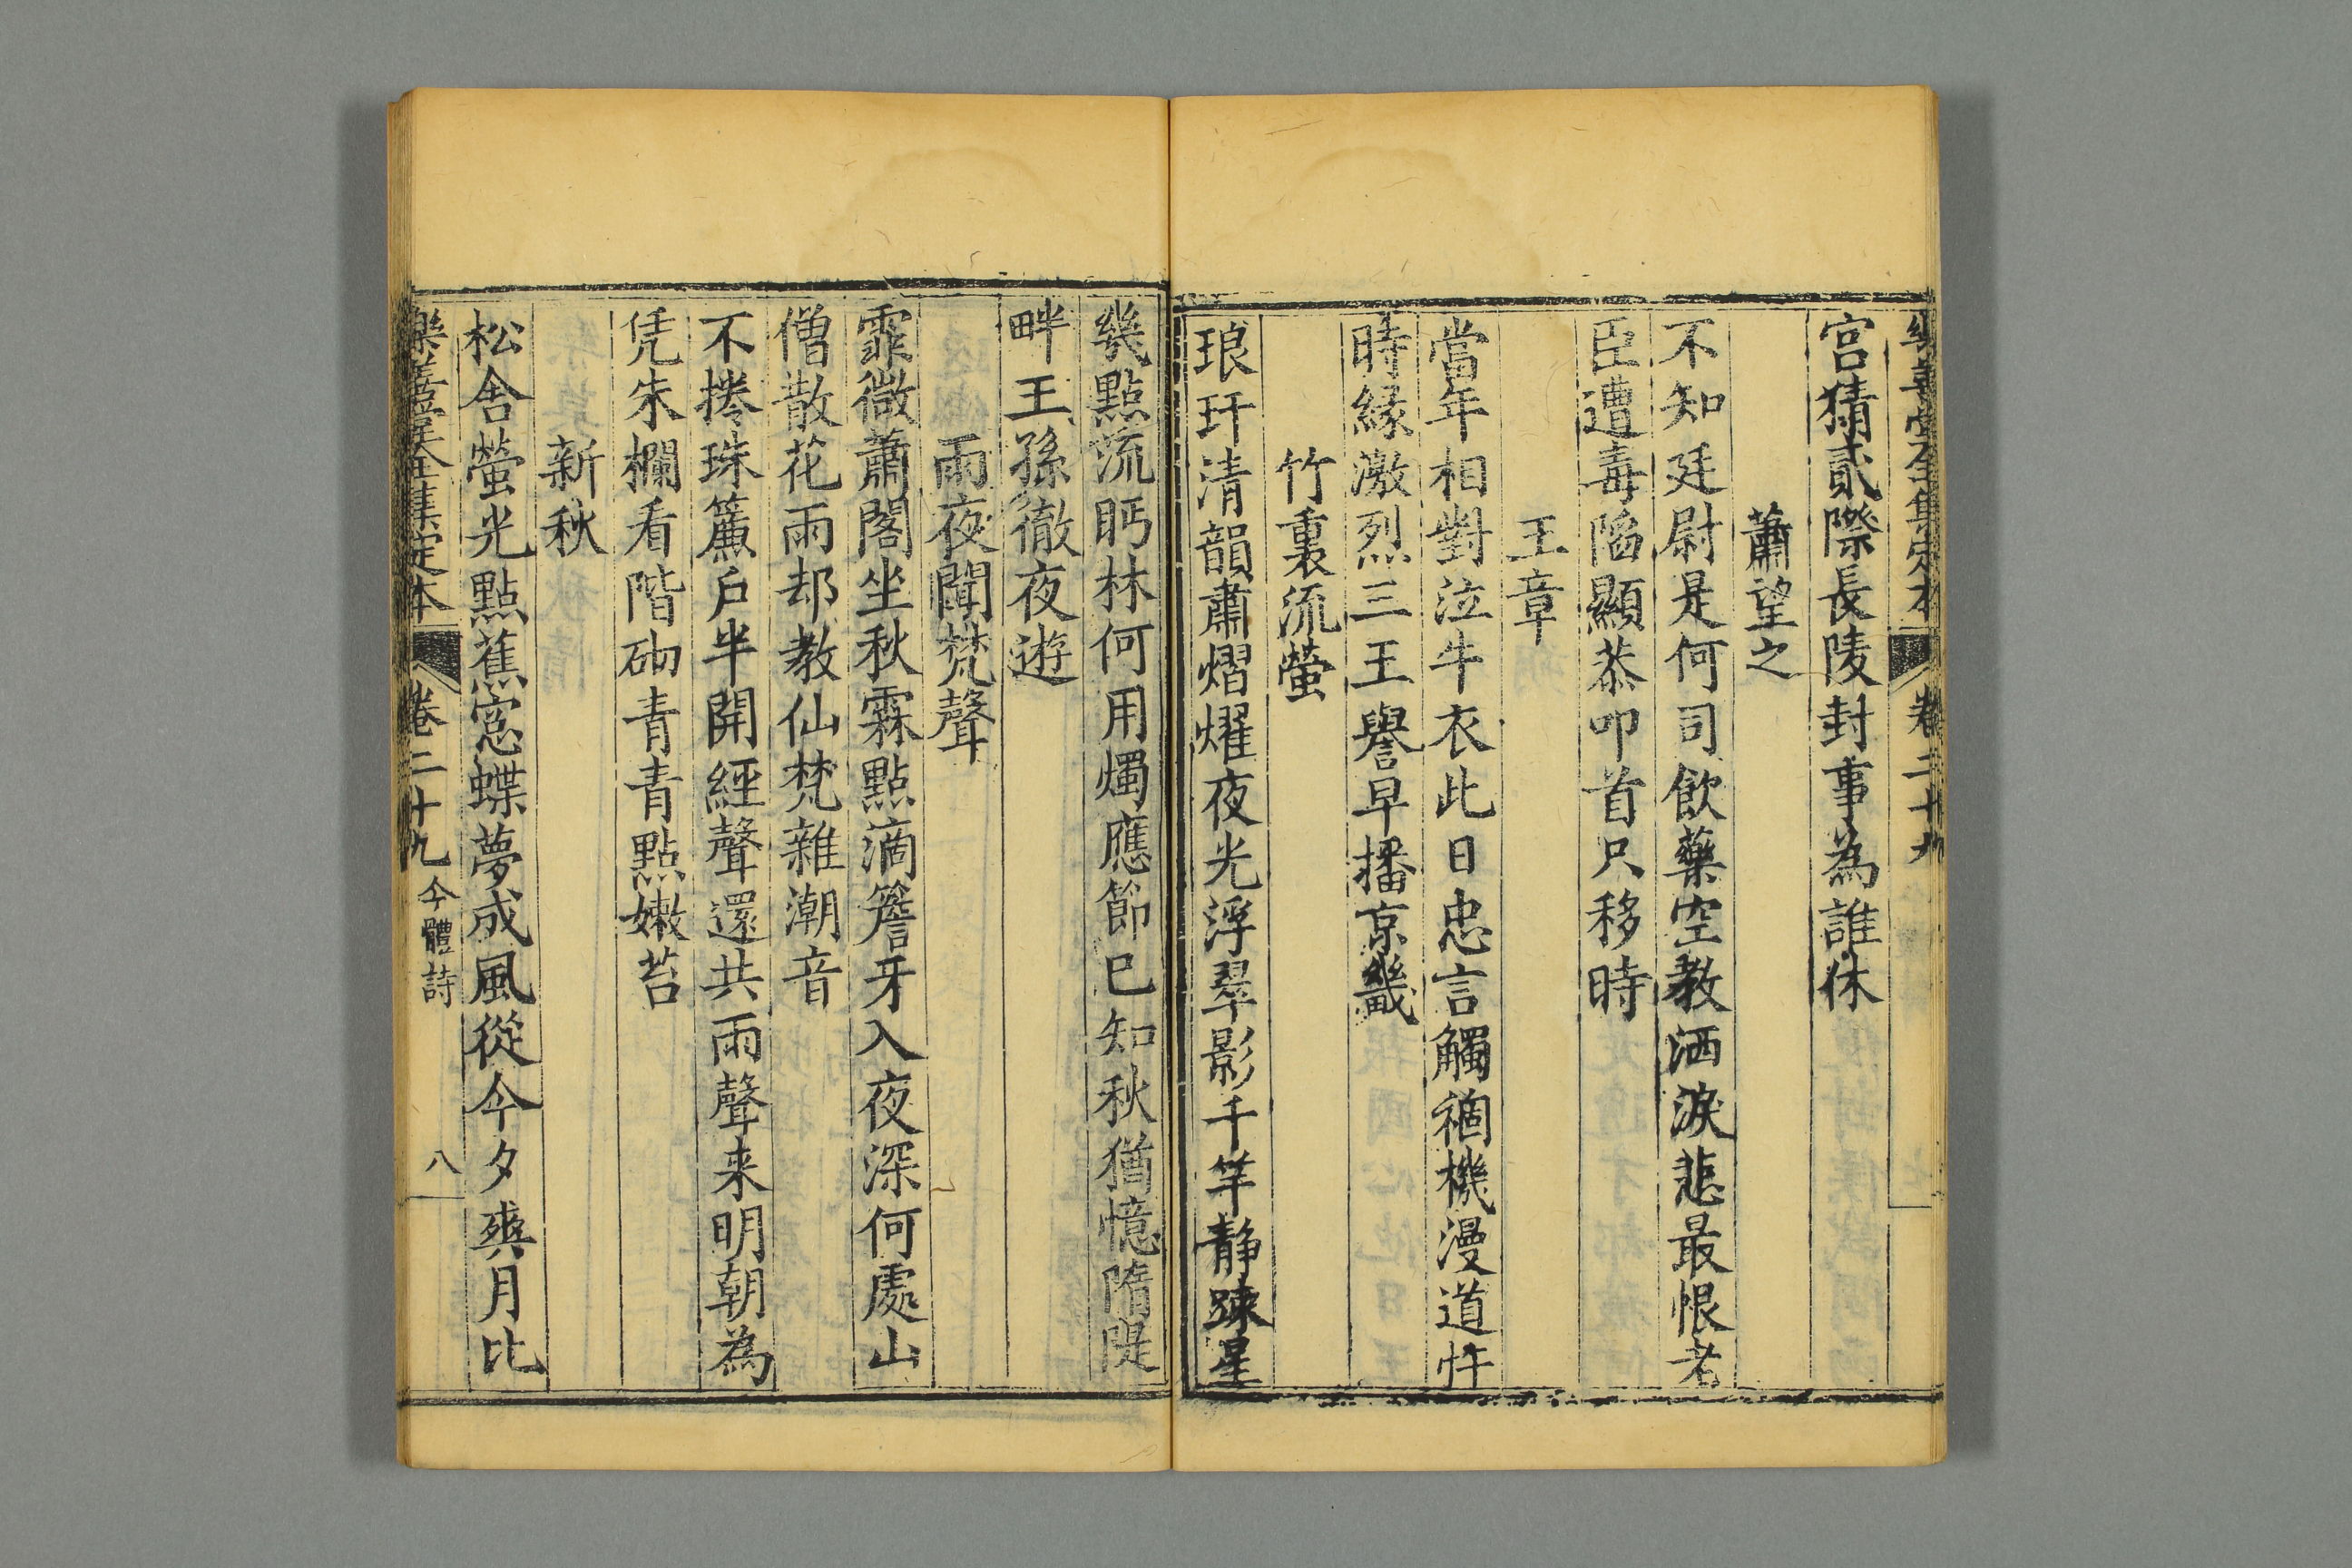 樂善堂全集定本 卷二十九
宫猜貳際長陵封事為誰休
蕭望之
不知廷尉是何司飲藥空教洒淚悲最恨老
臣遭毒陷顯恭叩首只移時
王章
當年相對泣牛衣此日忠言觸禍機漫道忤
時緣激烈三王譽早播京畿
竹裏流螢
琅玕清韻肅熠燿夜光浮翠影千竿静踈星
幾點流眄林何用燭應節已知秋猶憶隋隄
畔王孫徹夜遊
雨夜聞梵聲
霏微蕭閣坐秋霖點滴簷牙入夜深何處山
僧散花雨却教仙梵雜潮音
不捲珠簾戶半開經聲還共雨聲来明朝為
凭朱欄看階砌青青點嫩苔
新秋
松舍螢光點蕉窓蝶夢成風從今夕爽月比
樂善堂全集定本 卷二十九 今體詩 八